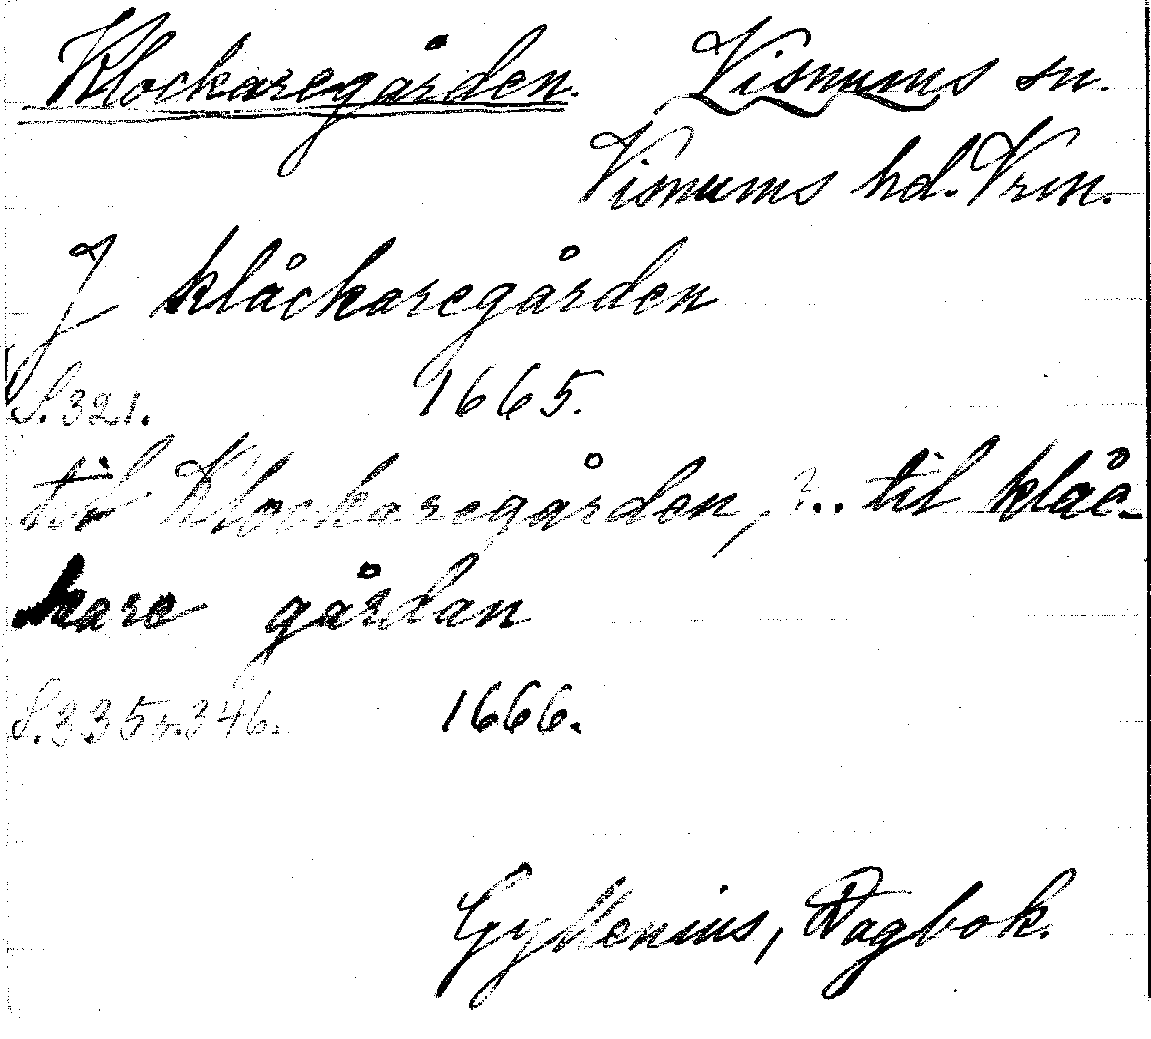 Klockaregården. Visnums sn.
Visnums hd. Vrm.
J klåckaregården
S. 321. 1665.
til Klockaregården, ... til klåc-
kare gårdan
S. 335 o. 346. 1666.
Gyllenius, Dagbok.